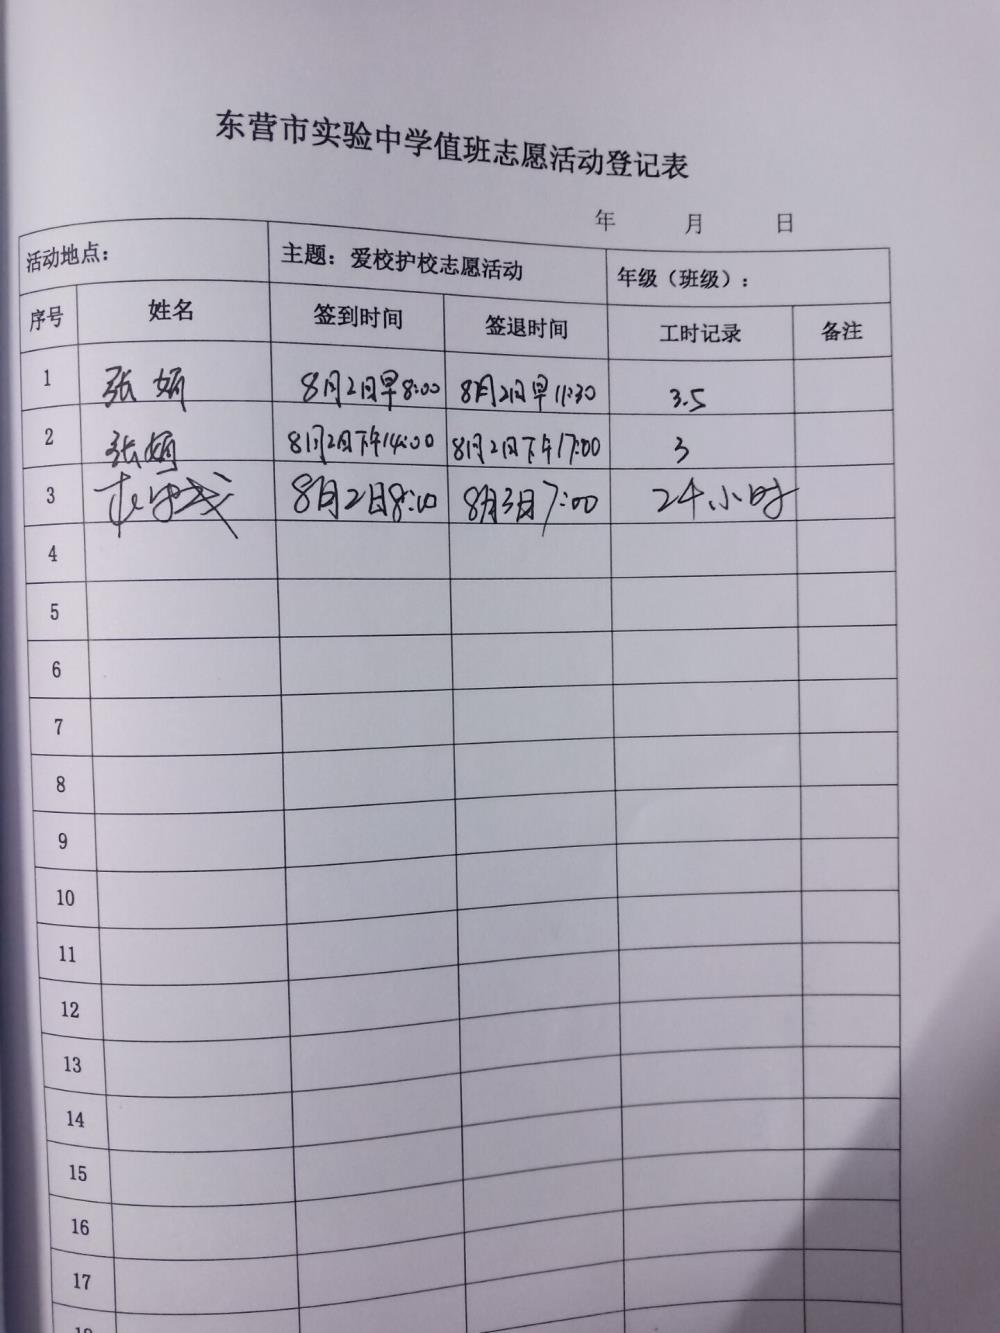 东营市实验中学值班志愿活动登记表
年 月 日
活动地点： 主题：爱校护校志愿活动 年级（班级）：
序号 姓名 签到时间 签退时间 工时记录 备注
1 张娟 8月2日早8:00 8月2日早11:30 3.5
2 张娟 8月2日下午14:00 8月2日下午17:00 3
3 8月2日8:00 8月3日7:00 24小时
4
5
6
7
8
9
10
11
12
13
14
15
16
17